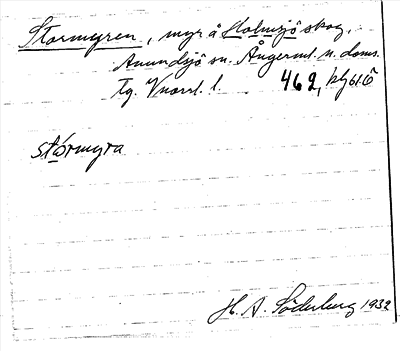 Stormyren, myr å Holmsjö skog,
Anundsjö sn. Ångerml. n. doms.
Tg. Vnorrl. l. 462,
stórmyra
H. A. Söderberg 1932